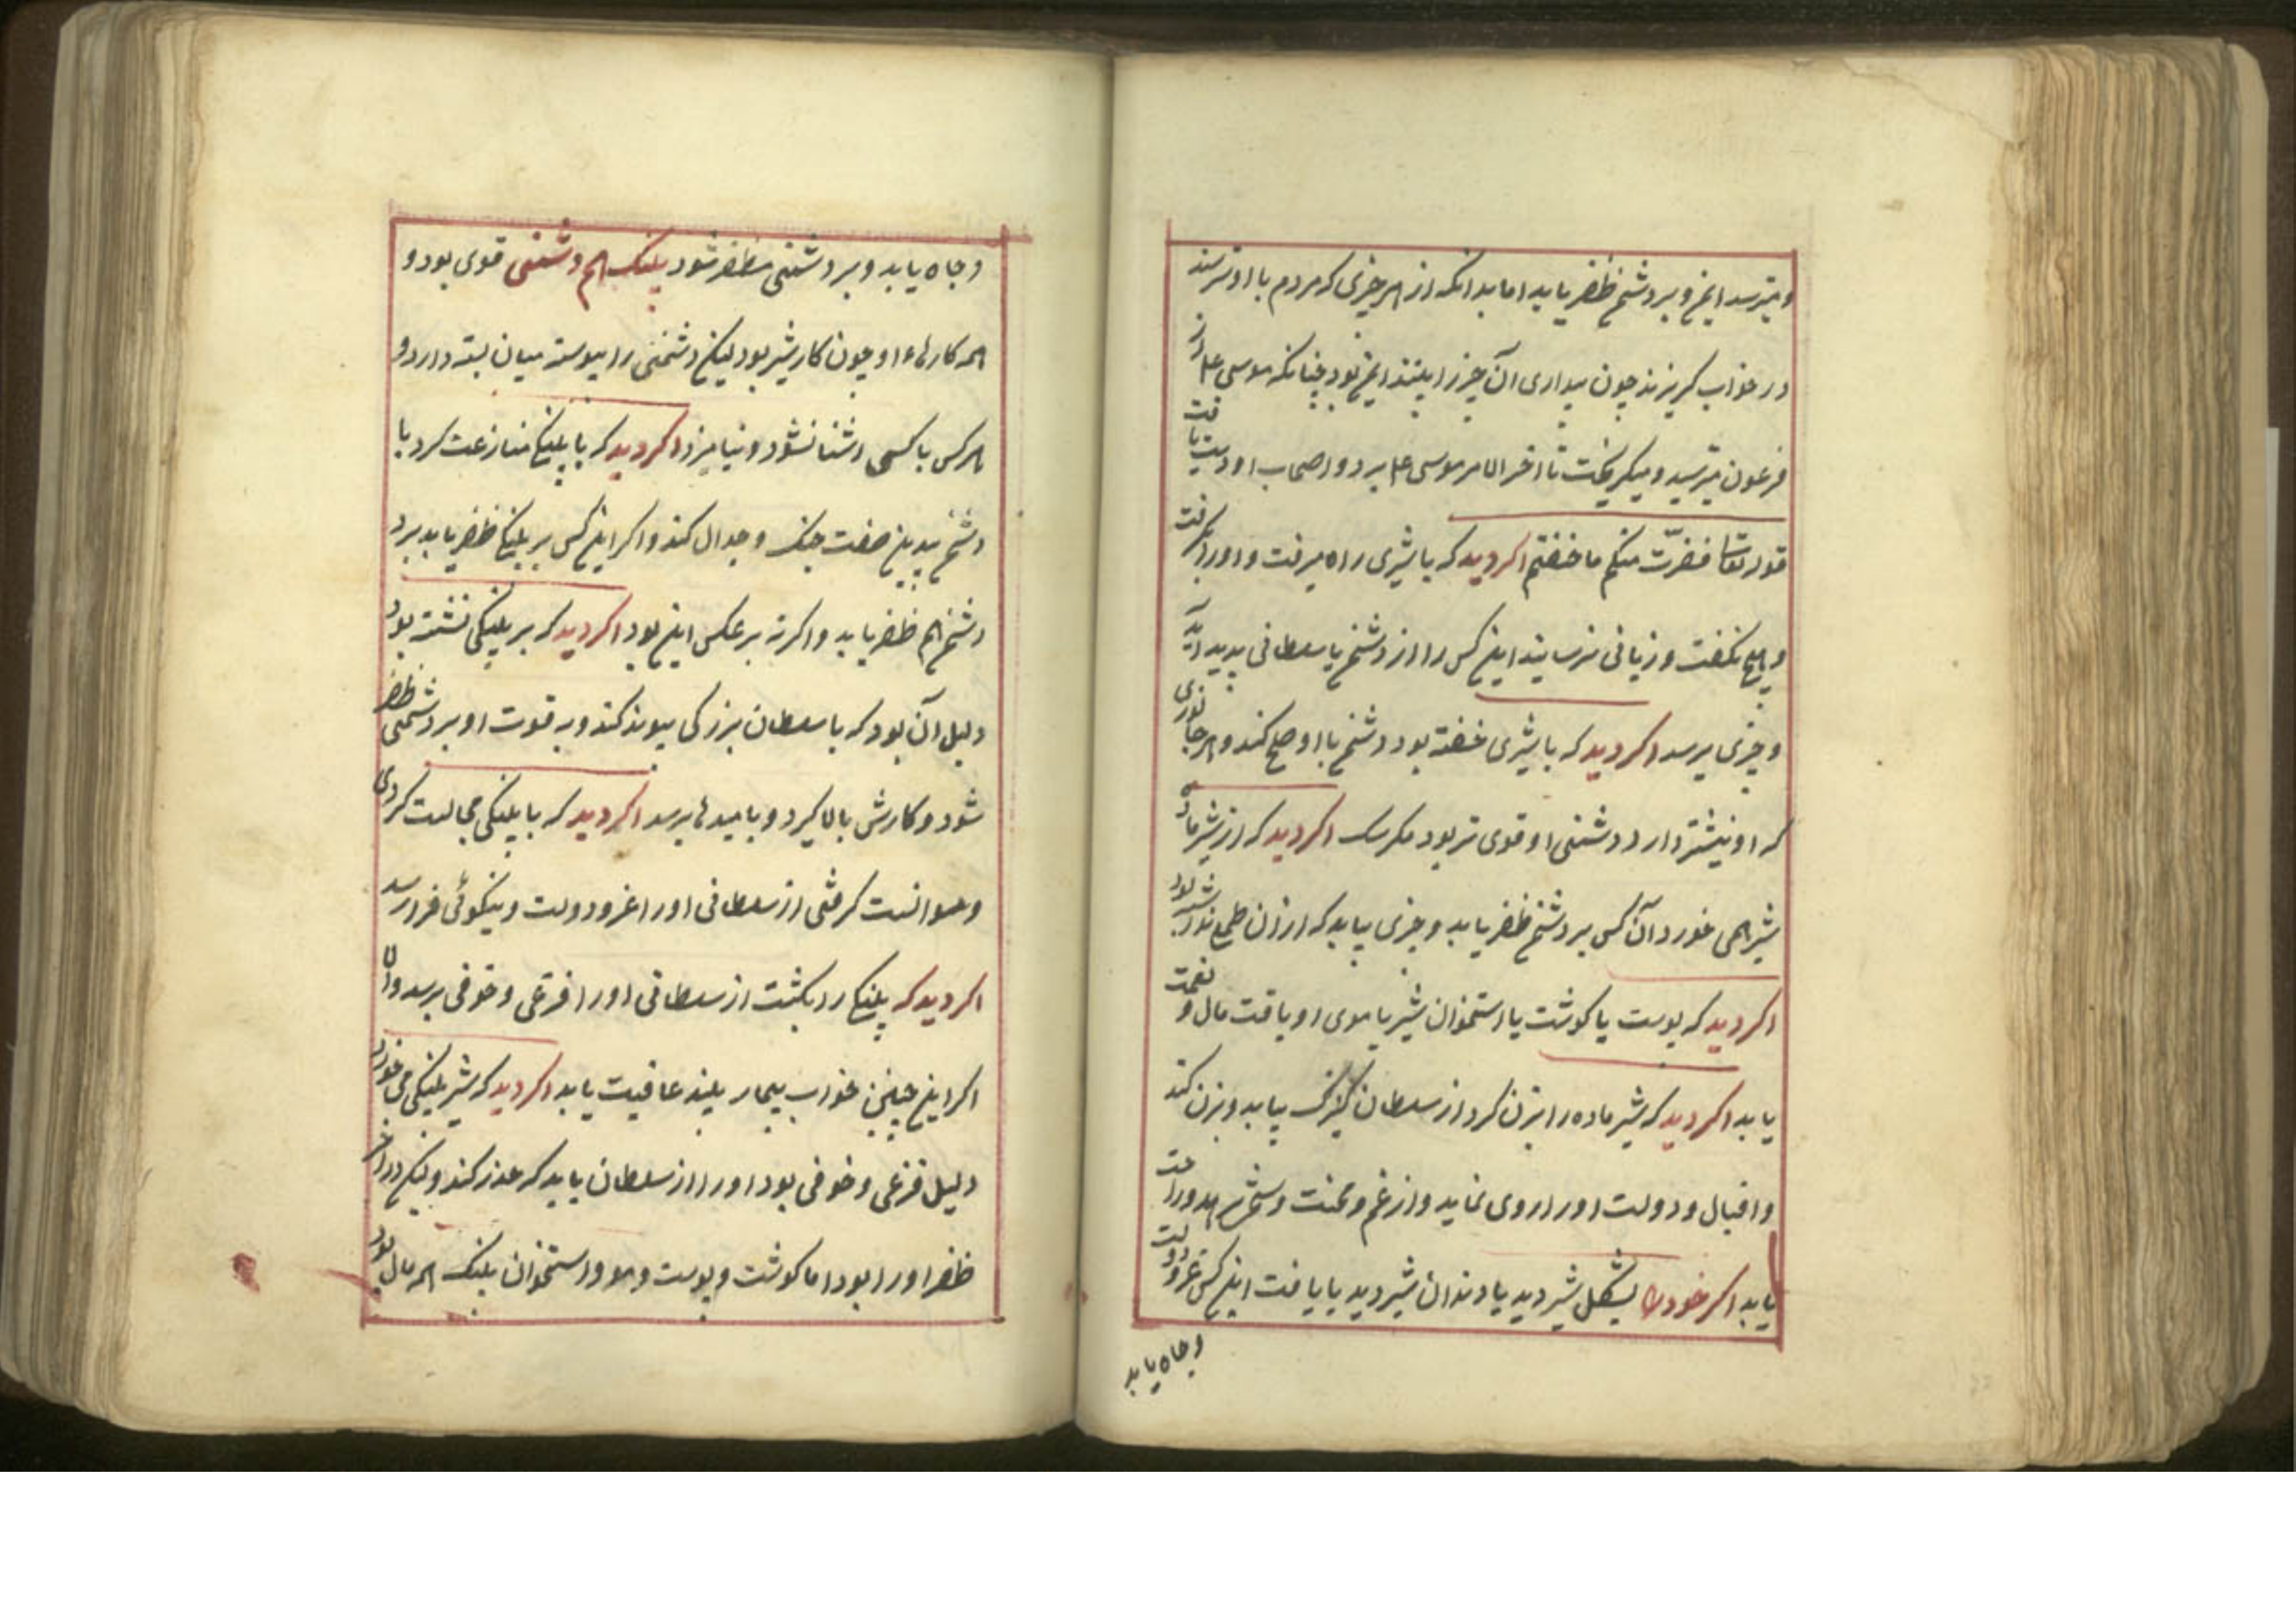 و میترسد ایمن و بر دشمن ظفر یابد اما بدانکه از هر چیزی که مردم با او ترسند
در خواب گریزند چون بیداری آن چیز را بینند ایمن بود چنانکه موسی ع از
فرعون میترسید و میگریخت تا اخر الامر موسی ع بر او و اصحاب او دست یافت
قوله تعالی ففررت منکم ما خفتم اکر دید که با شیری راه میرفت و او را نگرفت
و هیچ نگفت و زیانی نرسانید این کس را از دشمن یا سلطانی پدید آید
و چیزی برسد اکر دید که با شیری خفته بود دشمن با او صلح کند و هر جانوری
که او نیشتر دارد دشمنی او قوی تر بود مکر سک اکر دید که از شیر ماده
شیر همی خورد آن کس بر دشمن ظفر یابد و چیزی بیابد که از آن طمع ندارد
اکر دید که پوست یا کوشت یا استخوان شیر یا موی او یافت مال و نعمت
یابد اکر دید که شیر ماده را بزن کرد از سلطان کنیزک بیابد و بزن کند
و اقبال و دولت او را روی نماید و از غم و محنت و راحت
یابد اکر خود را بشکل شیر دید یا دندان شیر دید یا یافت این کس عز و دولت
وجاه یابد
وجاه یابد و بر دشمنی مظفر شود پلنک هم دشمنی قوی بود و
همه کارهاء او چون کار شیر بود لیکن دشمنی را پیوسته میان بسته دارد و
هر کس با کسی اشنا نشود و نیامیزد اکر دید که با پلنک منازعت کرد با
دشمن بدین صفت جنک و جدال کند و اکر این کس بر پلنک ظفر یابد بر
دشمن هم ظفر یابد و اکر نه بر عکس این بود اکر دید که بر پلنکی نشسته بود
دلیل آن بود که با سلطان بزرکی پیوند کند و به قوت او بر دشمنی ظفر
شود و کارش بالا کیرد و بامیدها برسد اکر دید که با پلنکی مجالست کردی
و توانست کرفتی از سلطانی او را عز و دولت و نیکوئی فرا رسد
اکر دید که پلنک را بکشت از سلطانی او را فزعی و خوفی برسد و
اکر این چنین خواب بیمار بیند عافیت یابد اکر دید که شیر پلنکی می خورد
دلیل فزعی و خوفی بود او را از سلطان باید که حذر کند و لیکن در آخر
ظفر او را بود اما کوشت و پوست و مو و استخوان پلنک همه مال بود